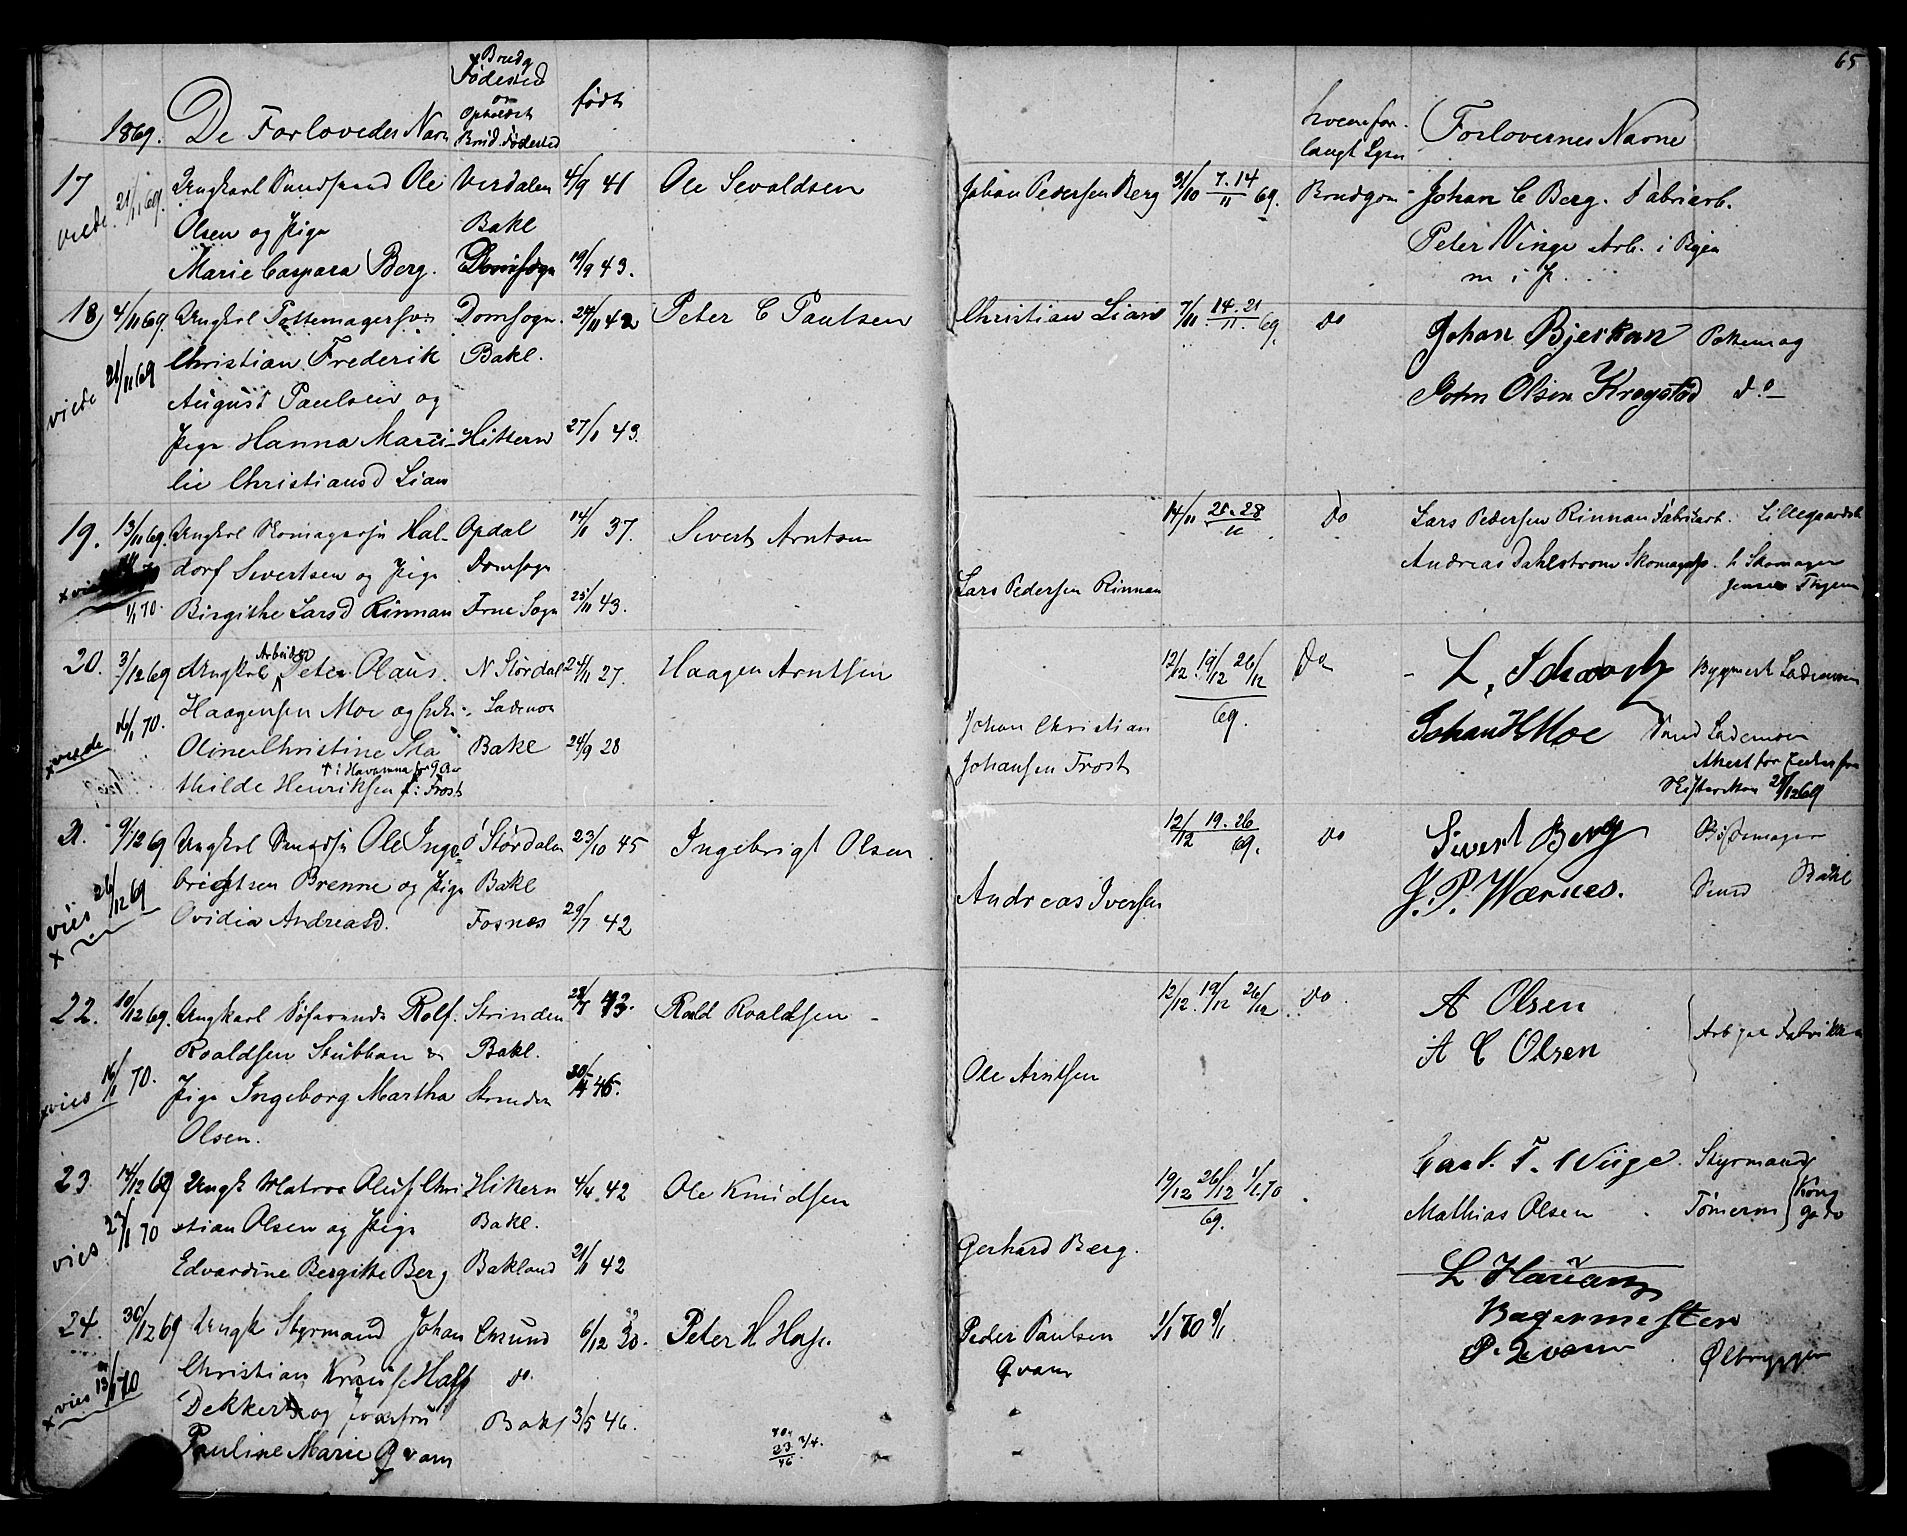 65
1869. De Forlovedes Navn Brudg Fødested og Opholdst Brud. Fødested født
hvem forlangt Lysn Forlovernes Navne
17 21/11 69. Ungkarl Ole Verdalen 4/9 41 Ole Sevaldsen
viede Olsen og Pige Bakl
Marie Caspara Berg. Domsogn 19/9 43.
Johan Pedersen Berg 31/10 7.14/11 69. Brudgom Johan C Berg. Fabriarb.
Peter Vinge Arb. i
18 4/11 69. Ungkrl Pottemagersv Domsogn. 24/11 42 Peter C Paulsen
viede 21/11 69 Christian Frederik Bakl.
August Paulsen og
Pige Hanna Mari- Hittern 27/1 43.
lie Christiansd Lian
Christian Lian 7/11 14.21/11 69. Do Johan Bjerkan Pottemag
John Olsen Krogstad Do
19. 13/11 69. Ungkrl Skomagersv Hal- Opdal 14/11 37. Sivert Arntsen
dorf Sivertsen og Pige Domsogn
1/1 70. Birgithe Larsd Rinnan Frue Sogn 25/11 43.
Lars Pedersen Rinnan
14/11 21.28/11 Do Lars Pedersen Rinnan Fabrikarb. Lillegaardsb
Andreas Dahlstrom Skomagersv. h Skomager
Jensen
20. 3/12 69 Ungkrl Arbeider Peter Olaus N Stördal 24/11 27. Haagen Arntsen
viede 16/1 70. Haagensen Moe og Lademoe
Oline Christine Ma Bakl 24/9 28
thilde Henriksen f: Frost
Johan Christian
Johansen Frost
12/12 19/12 26/12 69. Do L. Schavoch Bygmest Lademoen
Johan H Moe Lademoen
29/12 69
21. 9/12 69 Ungkrl Ole Inge- Ø Størdalen 23/10 45 Ingebrigt Olsen
vies 26/12 69 brigtsen Brenne og Pige Bakl
Ovidia Andreasd. Fosnes 29/7 42
Andreas Iversen
12/12 19.26 69. Do Sivert Berg Bødtemager
J. P. Wærnes. Bakl
22. 10/12 69. Ungkarl Søfarende Rolf. Strinden 28/7 43. Roald Roaldsen
vies 16/1 70. Roaldsen Stubban & Bakl.
Pige Ingeborg Martha Strinden 30/4 45.
Olsen.
Ole Arntsen
12/12. 19/12 26/12 Do A Olsen
A C Olsen
23 14/12 69 Ungk Matros Oluf Chri Hittern 4/4. 42 Ole Knudsen
vies 23/1 70 stian Olsen og Pige Bakl.
Edvardine Bergitte Berg Bakland 21/11 42
Gerhard Berg.
19/12 26/12 69. 1/1 70 Carl. T. Wiige. Styrmand
Mathias Olsen Tømerm
24. 30/12 69 Ungk Styrmand Johan Chrsund 6/12 30. Peter H Hass.
vies 13/1 70 Christian Do
Dekker og Jomfru Bakl 3/5 46.
Pauline Marie Qvam
Peder Paulsen
Qvam
1/1 70 9/1 L Harians
Bagermester
P. Qvam Ølbrygger
23
46